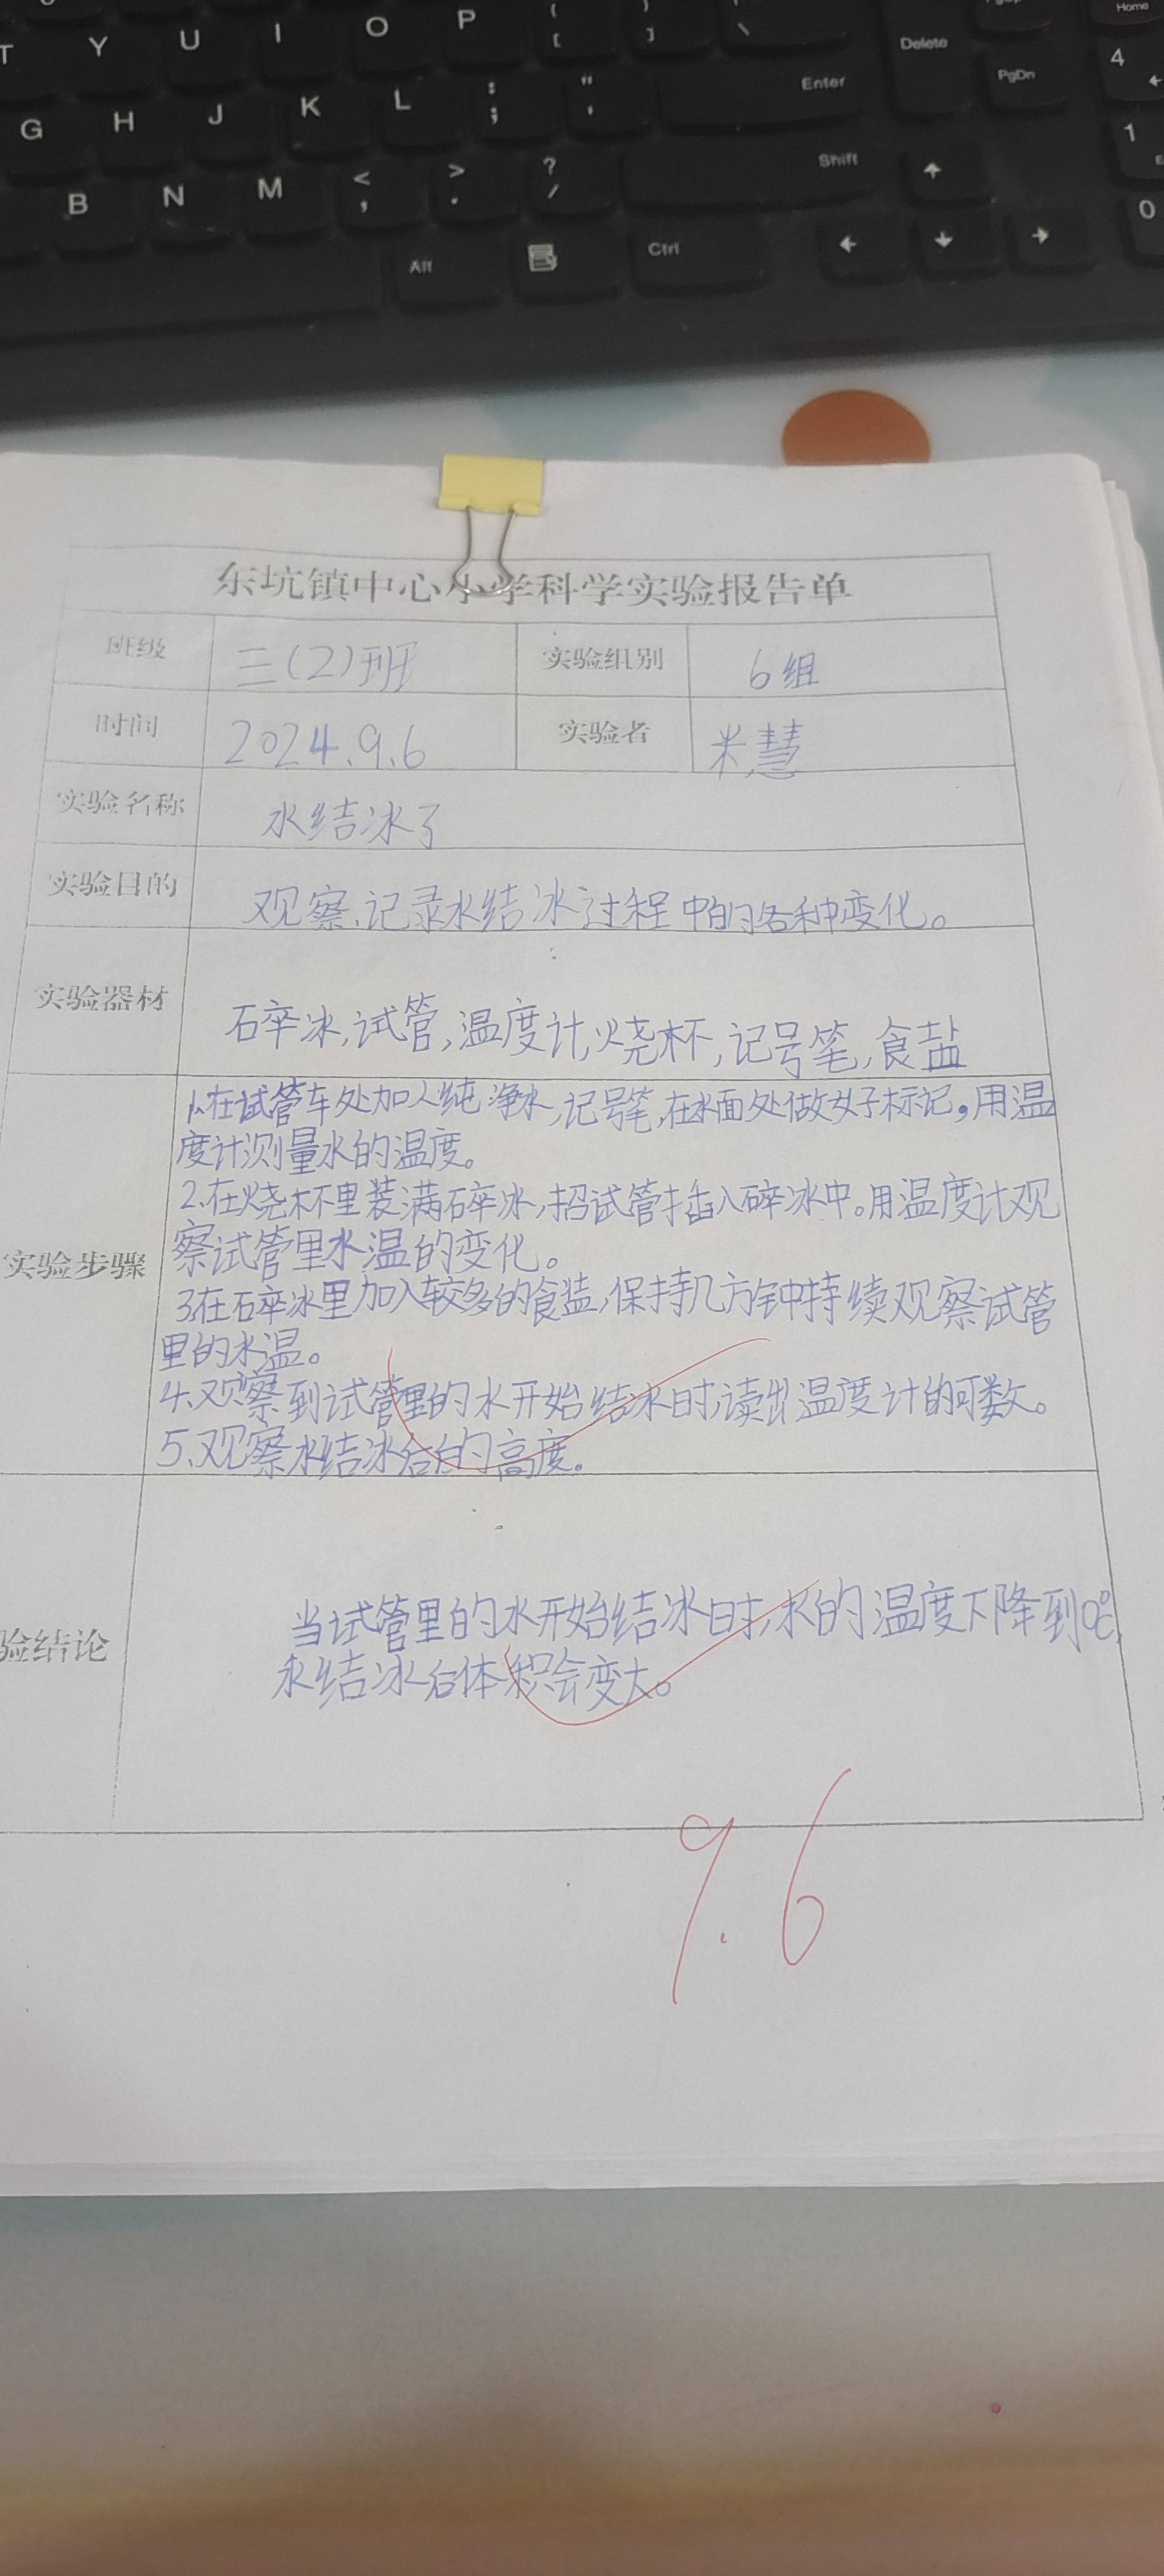 T Y U I O P { [ } ] | \ Delete Home
G H J K L : ; " ' Enter PgDn 4
B N M < , > . ? / Shift 1
Alt Ctrl 0
东坑镇中心小学科学实验报告单
班级 三(2)班 实验组别 6组
时间 2024.9.6 实验者 米慧
实验名称 水结冰了
实验目的 观察、记录水结冰过程中的各种变化。
实验器材 碎冰,试管,温度计,烧杯,记号笔,食盐
1.在试管车处加入纯净水,记号笔,在水面处做好标记,用温
度计测量水的温度。
2.在烧杯里装满碎冰,招试管插入碎冰中。用温度计观
察试管里水温的变化。
实验步骤
3.在碎冰里加入较多的食盐,保持几方钟持续观察试管
里的水温。
4.观察到试管里的水开始结冰时,读出温度计的可数。
5.观察水结冰后的高度。
当试管里的水开始结冰时,水的温度下降到0℃,
验结论
水结冰后体积会变大。
9.6